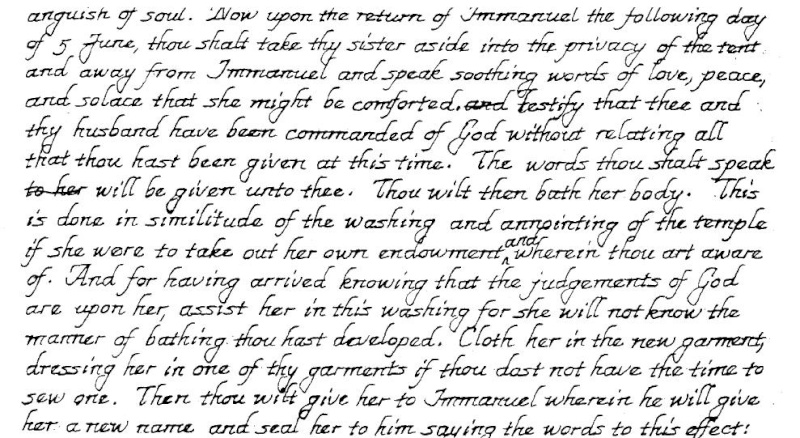 anguish of soul. Now upon the return of Immanuel the following day
of 5 June, thou shalt take thy sister aside into the privacy of the tent
and away from Immanuel and speak soothing words of love, peace,
and solace that she might be comforted. and testify that thee and
thy husband have been commanded of God without relating all
that thou hast been given at this time. The words thou shalt speak
to her will be given unto thee. Thou wilt then bath her body. This
is done in similitude of the washing and annointing of the temple
if she were to take out her own endowment, and wherein thou art aware
of. And for having arrived knowing that the judgements of God
are upon her, assist her in this washing for she will not know the
manner of bathing thou hast developed. Cloth her in the new garment,
dressing her in one of thy garments if thou dost not have the time to
sew one. Then thou wilt give her to Immanuel wherein he will give
her a new name and seal her to him saying the words to this effect: